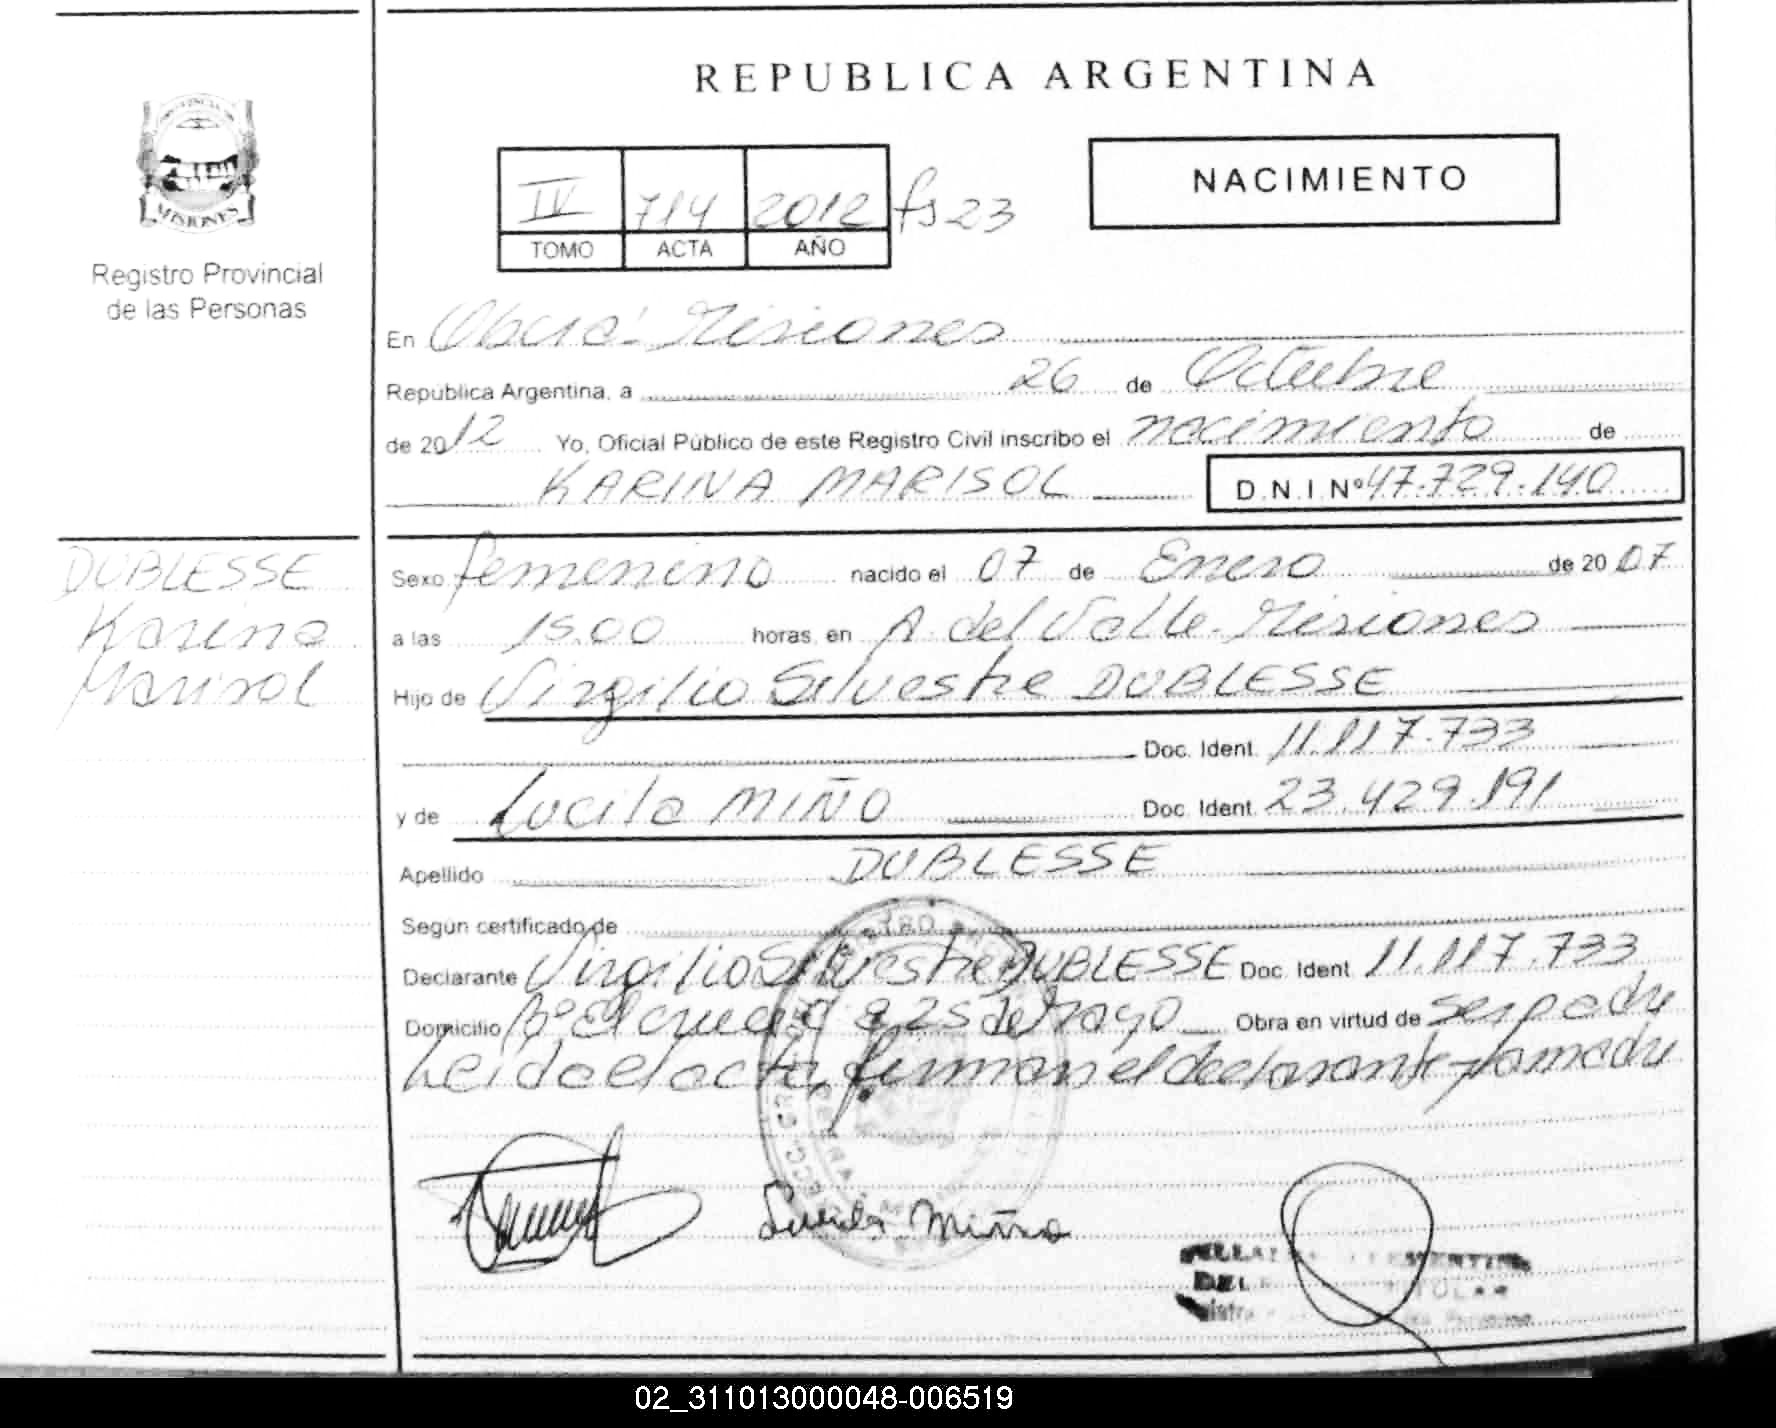 REPUBLICA ARGENTINA
PROVINCIA DE
MISIONES
Registro Provincial
de las Personas
IV 714 2012 fs 23
TOMO ACTA AÑO
NACIMIENTO
En Oberá - Misiones
República Argentina, a 26 de Octubre
de 2012 Yo, Oficial Público de este Registro Civil inscribo el nacimiento de
KARINA MARISOL D.N.I. Nº 47.729.140
DUBLESSE
Karina
Marisol
Sexo femenino nacido el 07 de Enero de 2007
a las 15.00 horas, en A. del Valle - Misiones
Hijo de Virgilio Silvestre DUBLESSE
Doc. Ident. 11.117.733
y de Lucila MIÑO Doc. Ident. 23.429.191
Apellido DUBLESSE
Según certificado de
Declarante Virgilio Silvestre DUBLESSE Doc. Ident. 11.117.733
Domicilio Bº El 25 de Mayo Obra en virtud de ser padre
Leida el acta, firman el declarante y la madre
Lucila Miño
02_311013000048-006519